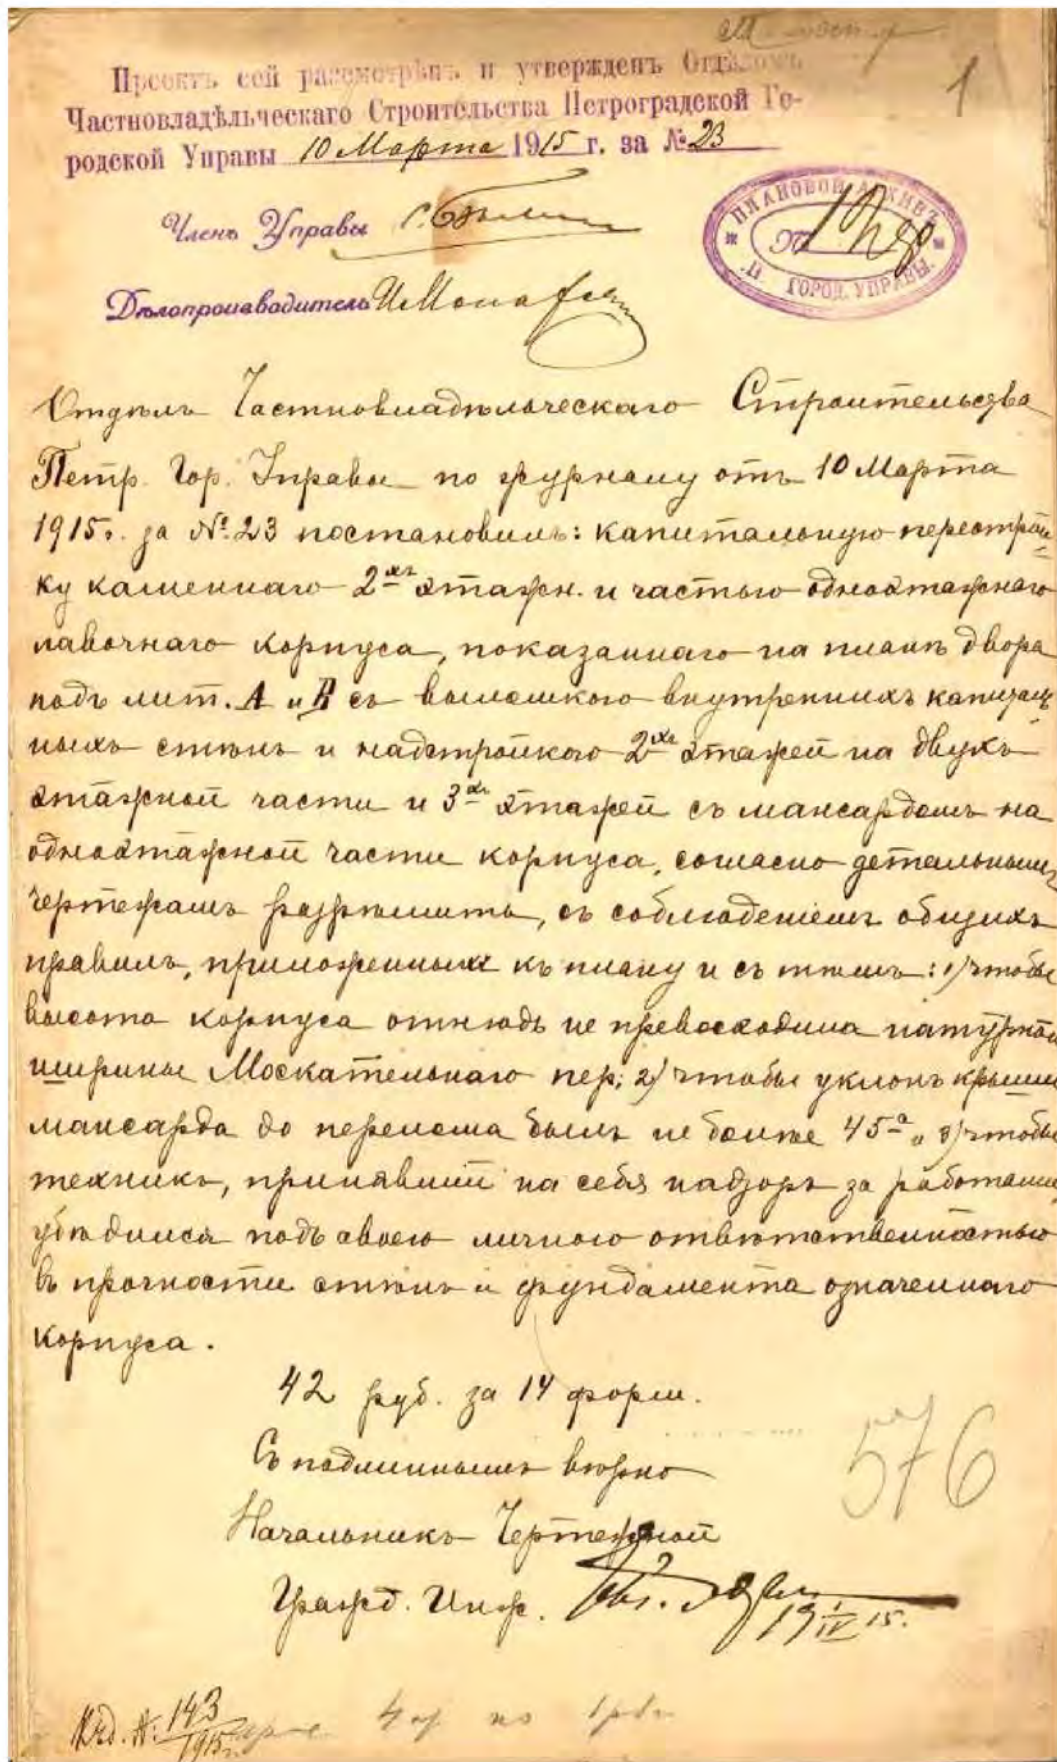 1
Проектъ сей разсмотрѣнъ и утвержденъ Отдѣломъ
Частновладѣльческаго Строительства Петроградской Го-
родской Управы 10 Марта 1915 г. за № 23
Членъ Управы
ПЛАНОВОЙ АРХИВЪ
П. ГОРОД. УПРАВЫ.
Дѣлопроизводитель
Отдѣлъ Частновладѣльческаго Строительства
Петр. Гор. Управы по журналу отъ 10 Марта
1915 г. за №. 23 постановилъ: капитальную перестрой=
ку каменнаго 2хъ этажн. и частью одноэтажнаго
лавочнаго корпуса, показаннаго на планѣ двора
подъ лит. А и В съ выломкою внутреннихъ капиталь
ныхъ стѣнъ и надстройкою 2хъ этажей на двухъ
этажной части и 3хъ этажей съ мансардомъ на
одноэтажной части корпуса, согласно детальнымъ
чертежамъ разрѣшить, съ соблюденіемъ общихъ
правилъ, приложенныхъ къ плану и съ тѣмъ: 1) чтобы
высота корпуса отнюдь не превосходила натурной
ширины Москательнаго пер; 2) чтобы уклонъ крыши
мансарда до перелома былъ не болѣе 45° и 3) чтобы
техникъ, принявшій на себя надзоръ за работами
убѣдился подъ своею личною отвѣтственностью
въ прочности стѣнъ и фундамента означеннаго
корпуса.
42 руб. за 14 форм.
Съ подлиннымъ вѣрно
576
Начальникъ Чертежной
Гражд. Инж.
19 IV 15.
143
1915